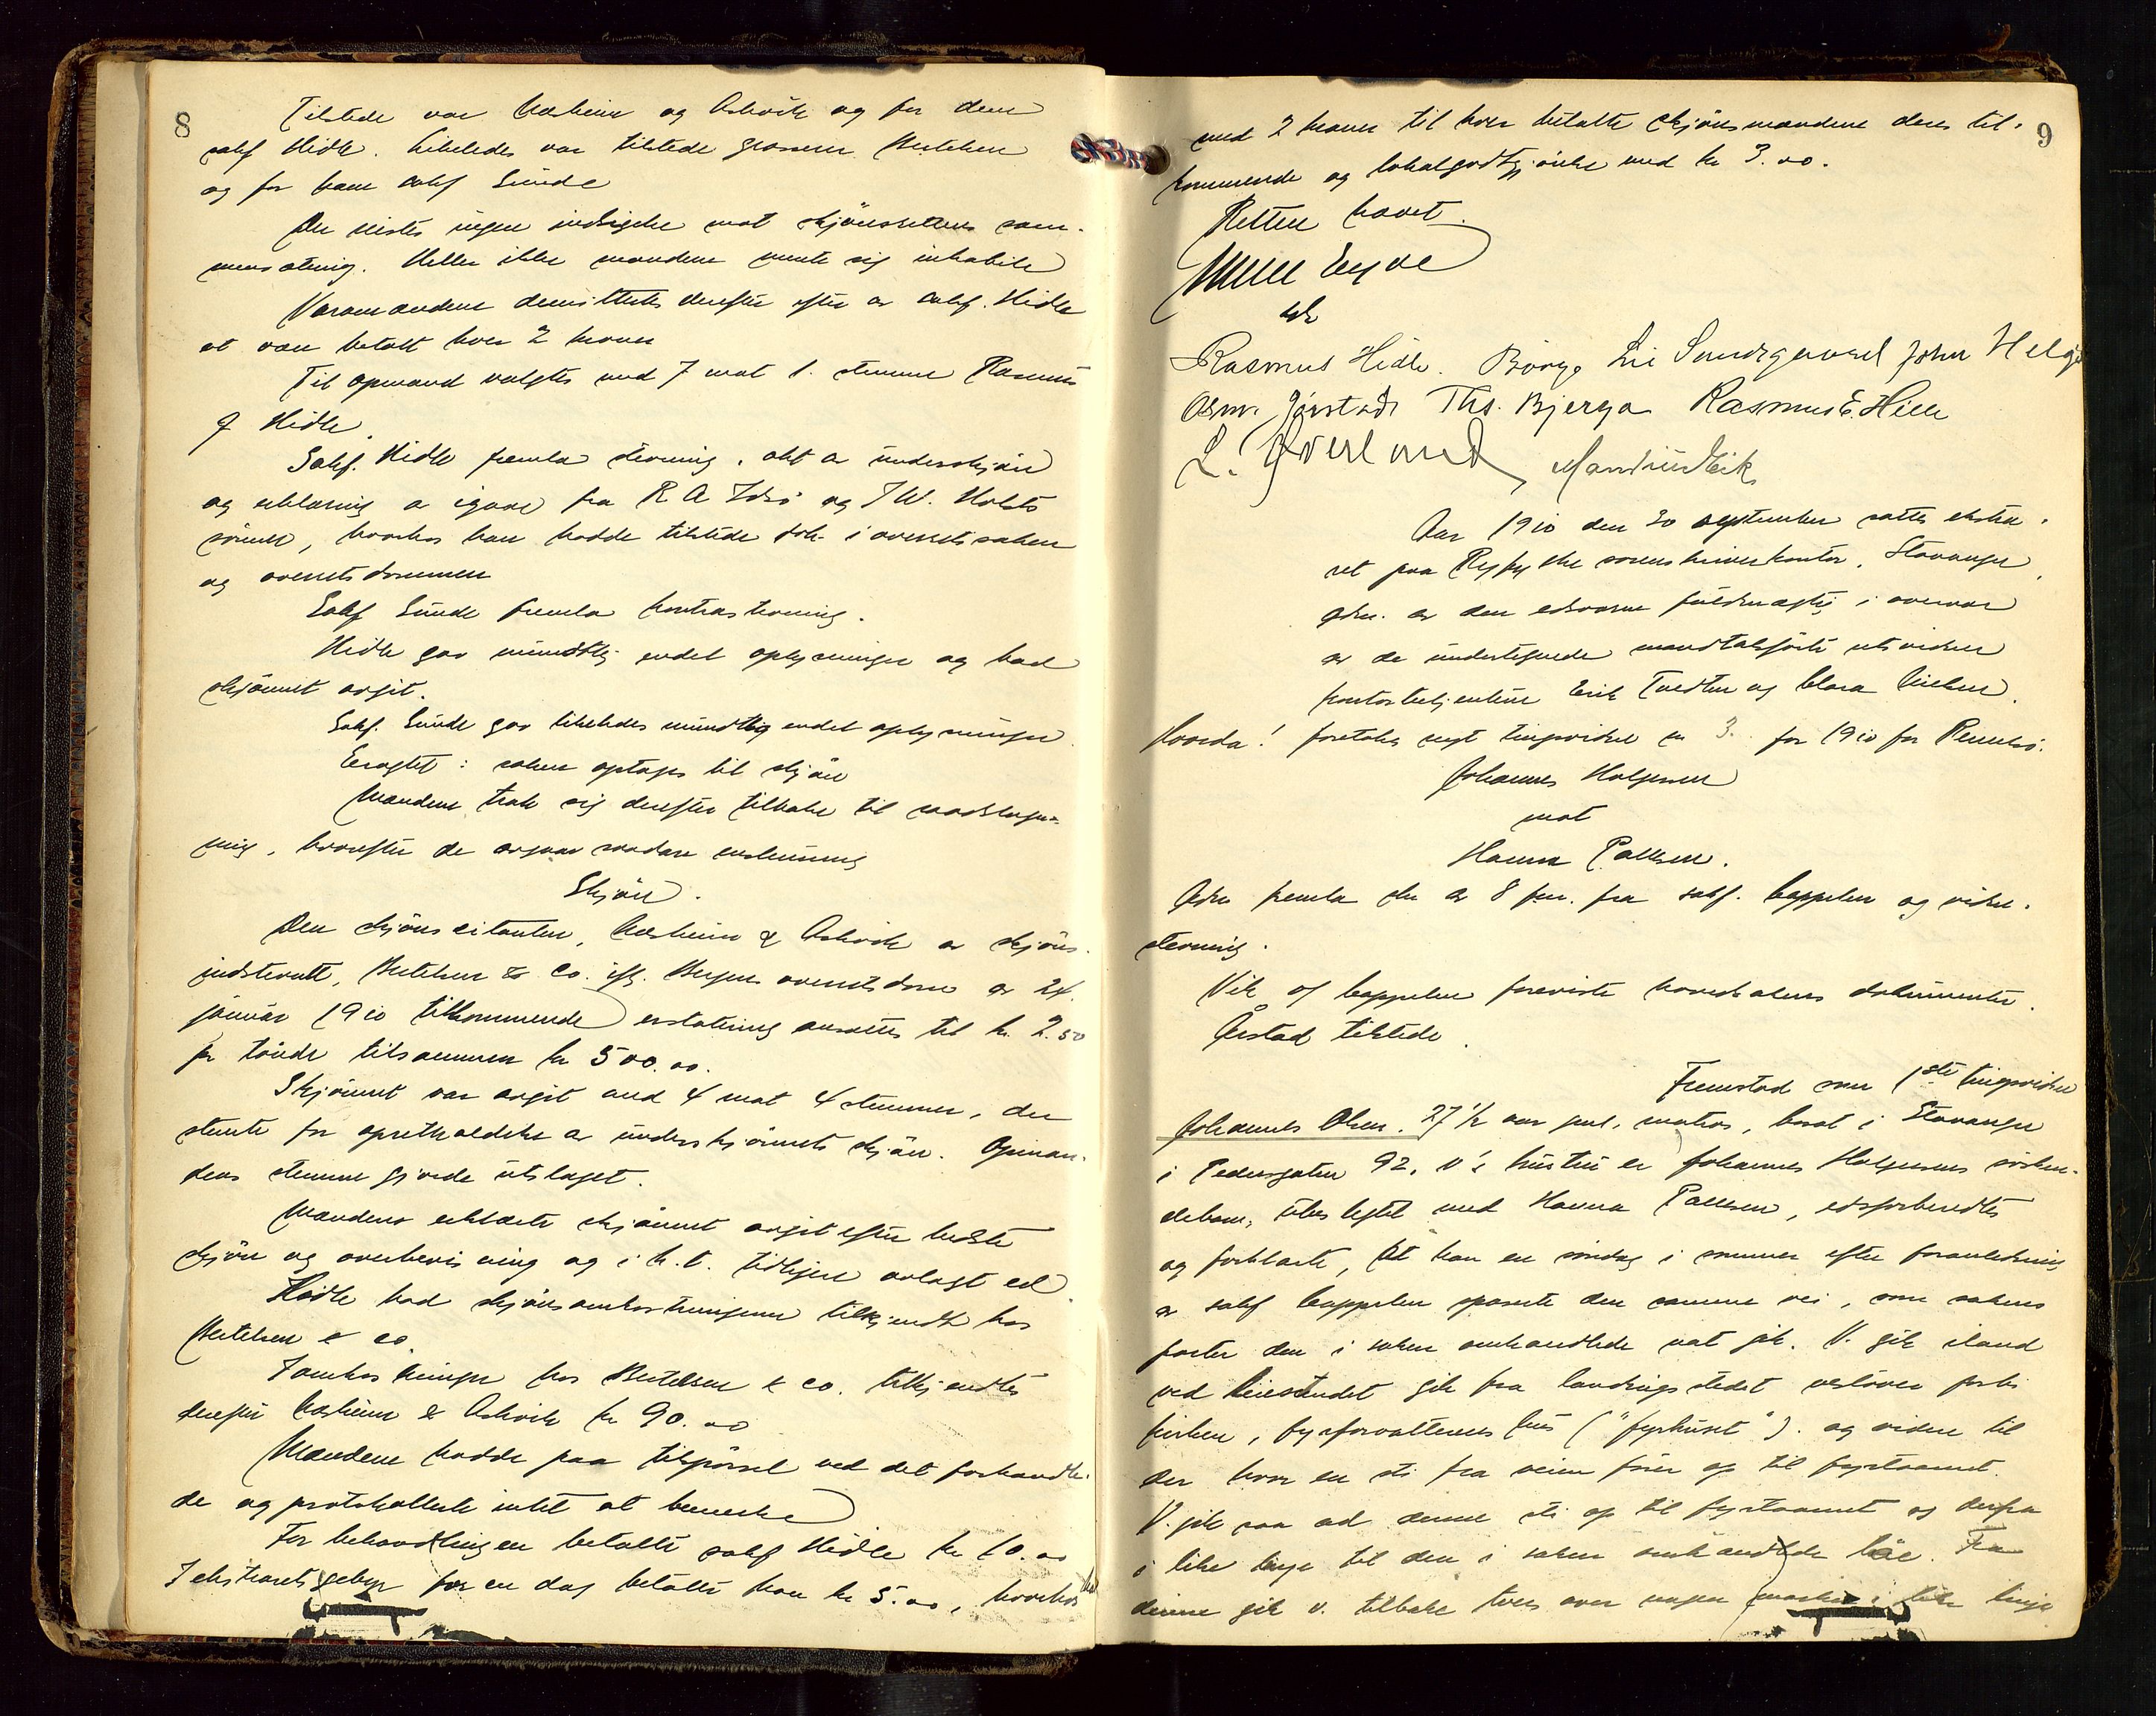 8
Tilstede var Næsheim og Askvik og for dem
sakf Hidle. Likeledes var tilstede grosserer Bertelsen
og for ham sakf Sunde
Der reistes ingen indsigelse mot skjønsrettens sam-
mensætning. Heller ikke mændene mente sig inhabile
Varamændene demittertes derefter efter av sakf. Hidle
at være betalt hver 2 kroner
Til opmand valgtes med 7 mot 1. stemme Rasmus
J Hidle.
Sakf. Hidle fremla stevning, akt a underskjøn
og erklæring a igaar fra R A Idsø og T W. Holsts
sønner, hvorhos han hadde tilstede dok. i overretssaken
og overretsdommen
Sakf Sunde fremla kontrastevning.
Hidle gav mundtlig endel oplysninger og bad
skjønnet avgit.
Sakf. Sunde gav likeledes mundtlig endel oplysninger.
Eragtet: saken optages til skjøn
Mændene trak sig derefter tilbake til raadslagn-
ing, hvorefter de avgav saadan enstemmig
Skjøn.
Den skjønscitanten, Næsheim & Askvik av skjøns-
indstevnte, Bertelsen & Co. iflg. Bergens overretsdom av 24.
januar 1910 tilkommende erstatning ansættes til kr. 2.50
pr tønde tilsammen kr 500.00.
Skjønnet var avgit med 4 mot 4 stemmer, der
stemte for opretholdelse a underskjønnets skjøn. Opman-
dens stemme gjorde utslaget.
Mændene erklærte skjønnet avgit efter bedste
skjøn og overbevisning og i h.t. tidligere avlagt ed.
Hidle bad skjønsomkostningerne tilkjendt hos
Bertelsen & co.
I omkostninger hos Bertelsen & co. tilkjendtes
derefter Næsheim & Askvik kr 90.00
Mændene hadde paa tilspørsel ved det forhandle-
de og protokollerte intet at bemerke
For behandlingen betalte sakf Hidle kr 10.00
I ekstraretsgebyr for en dag betalte han kr 5.00, hvorhos han
9
med 2 kroner til hver betalte skjønsmændene deres til-
kommende og lokalgodtgjørelse med kr 3.00.
Retten hævet.
Rasmus Hidle. Børge Lie Sundsgaard John Helgø
Asm. Jørstad Ths. Bjerga Rasmus E. Hille
L. Øverland
Aar 1910 den 30 september sattes ekstra-
ret paa Ryfylke sorenskriverkontor, Stavanger,
adm. av den edsvorne fuldmægtig i overvær
av de undertegnede mandtalsførte retsvidner
kontorbetjentene Erik Tvedten og Clara Nielsen.
Hvorda! foretokes nyt tingsvidne nr 3. for 1910 for Rennesø.
Johannes Halvorsen
mot
Hanna Paulsen.
Adm fremla skr av 8 ds. fra sakf. Cappelen og vidne-
stevning.
Vik af Cappelen foreviste hovedsakens dokumenter.
Årstad tilstede.
Fremstod som 1ste tingsvidne
Johannes Olsen. 27 1/2 aar gml. matros, bosat i Stavanger
i Pedersgaten 92. v's hustru er Johannes Halvorsens søsken-
debarn, ubeslegtet med Hanna Paulsen, edsforberedtes
og forklarte, at han en søndag i sommer efter foranledning
av sakf Cappelen opgik den samme vei, som sakens
parter den i saken omhandlede nat gik. V. gik iland
ved gik fra landingsstedet vestover forbi
kirken, fyrforvalterens hus ("fyrhuset"). og videre til
der hvor en sti fra veien fører op til fyrtaarnet.
V. gik saa ad denne sti op til fyrtaarnet og derfra
i like linje til den i saken omhandlede løe. Fra
denne gik v. tilbake tvers over marken i like linje